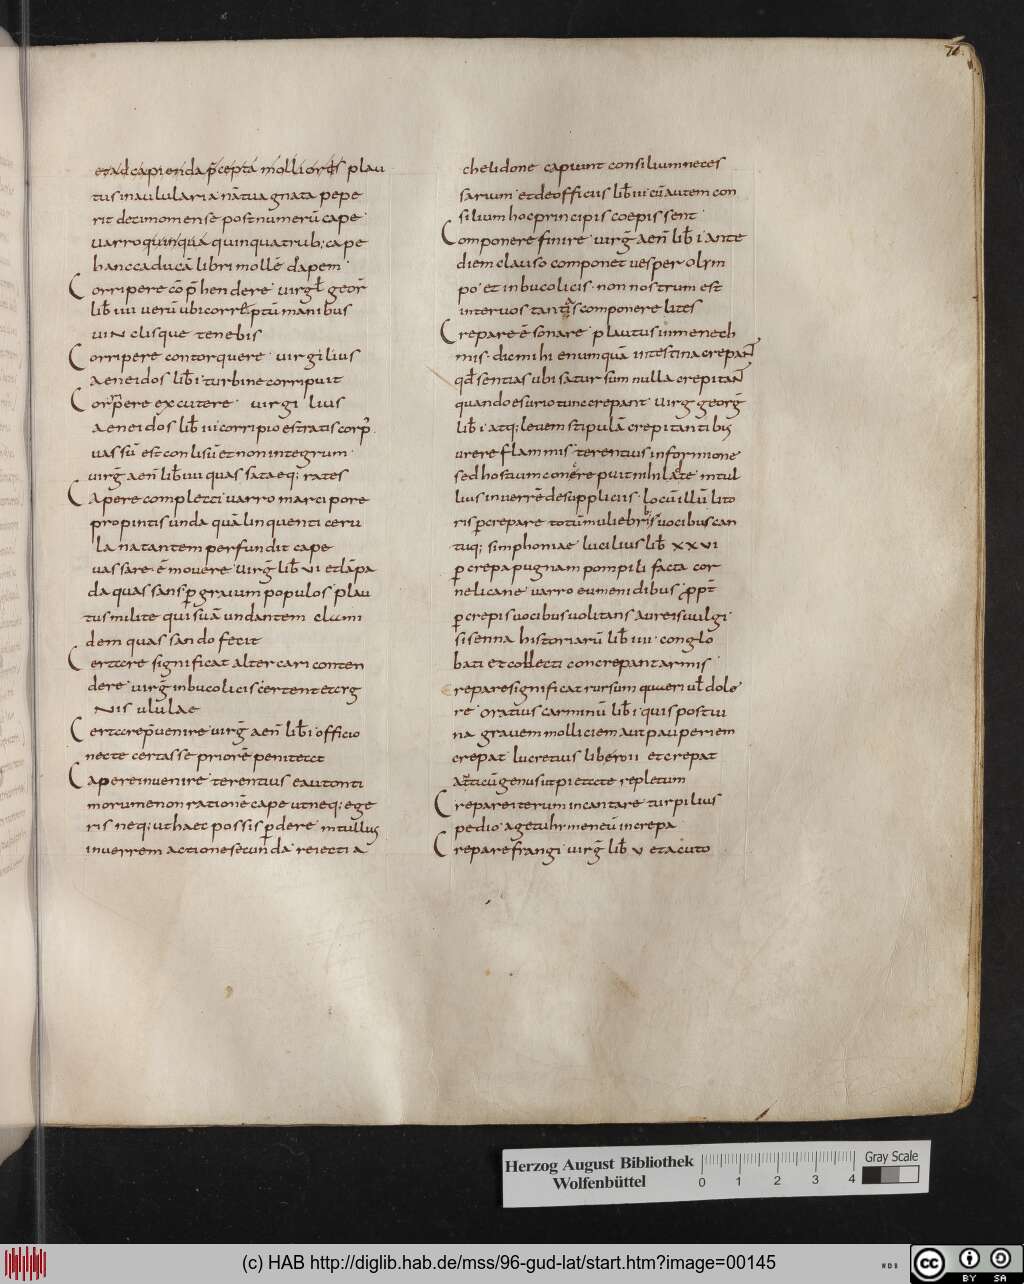 et ad capienda p̄cepta molliores plau
tus inaulularia nātua gnata pepe
rit decimo mense post numerū cape
uarro quinqua quinquatrub; cape
hanc caducā libri mollē dapem
Corripere cōp̄hendere uirgł geor̄
lib̄ iiii uerū ubi correptū manibus
uinclisque tenebis
Corripere contorquere uirgilius
aeneidos lib̄ i turbine corripuit
Corp̄ere excutere uirgilius
aeneidos lib̄ iii corripio estratis corp̄
uassū est conlisū et non integrum
uirḡ aen̄ lib̄ iiii quassataeq; rates
Capere complecti uarro marcipore
propintis unda quā linquenti ceru
la natantem perfundit cape
uassare ē mouere uirḡ lib̄ vi et lāpa
da quassans p̱ graium populos plau
tus milite qui suā undantem clami
dem quassando fecit
Certare significat alter cari conten
dere uirḡ in bucolicis certent et cyg
nis ululae
Certare p̄uenire uirḡ aen̄ lib̄ i officio
necte certasse priorē peniteat
Capere inuenire terentius eautonti
morumenon rationē cape utneq; ege
ris neq; ut haec possis p̱dere m tullius
in uerrem actione secunda reiecti a
chelidone capiunt consilium neces
sarium et de officiis lib̄ iii cū autem con
silium hoc principis coepissent
Componere finire uirḡ aen̄ lib̄ i ante
diem clauso componet uesper olym
po et in bucolicis non nostrum est
inter uos tantas componere lites
Crepare ē sonare plautus in menech
mis dic mihi enumquā intestina crepant
qđ sentias ubi satur sum nulla crepitant
quando esurio tunc crepant uirg georḡ
lib̄ i atq; leuem stipulā crepitantibus
urere flammis terentius in formione
sed hostium concrepuit nihi latere m tul
lius in uerrē de suppliciis locū illū lito
ris p̱crepare totū muliebris uocibus can
tuq; simphoniae lucilius lib̄ xxvi
p̱crepa pugnam pompili facta cor
neli cane uarro eumenidibus p̄pt
p̱crepis uocibus uolitans aureis uulgi
sisenna historiarū lib̄ iiii conglo
bati et collecti concrepant armis
Crepare significat rursum quaeri uł dole
re oratius carminū lib̄ i quis post ui
na grauem molliciem aut pauperiem
crepat lucretius libero ii et crepat
a͞ticū genus ut pietate repletum
Crepare iterum incantare turpilius
pedio agetuhr mencū increpa
Crepare frangi uirḡ lib̄ v et acuto
Herzog August Bibliothek
Wolfenbüttel
0 1 2 3 4
Gray Scale
(c) HAB http://diglib.hab.de/mss/96-gud-lat/start.htm?image=00145
WDB
cc BY SA